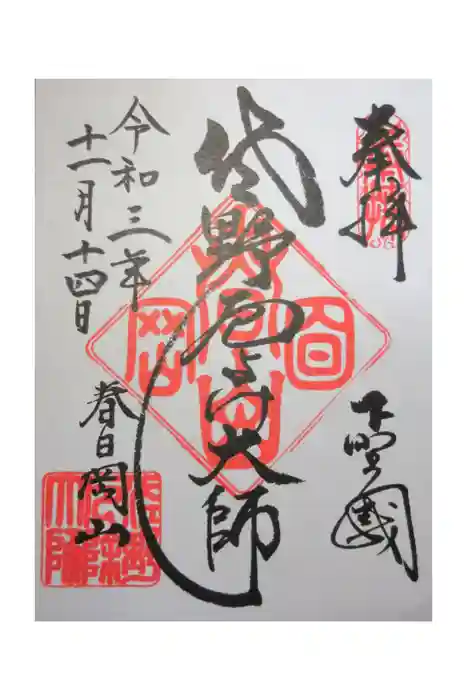 奉拝
下野國
佐野厄よけ大師
令和三年
十一月十四日
春日岡山